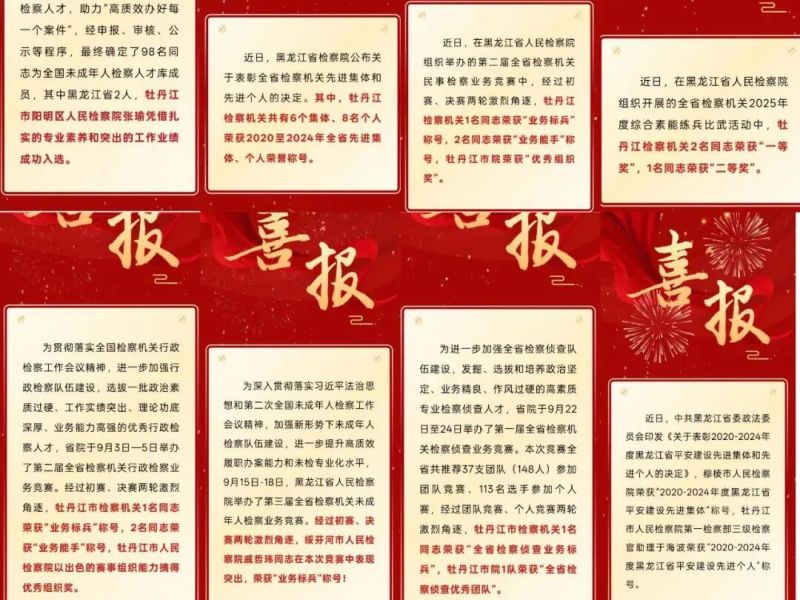 检察人才，助力“高质效办好每
一个案件”，经申报、审核、公
示等程序，最终确定了98名同
志为全国未成年人检察人才库成
员，其中黑龙江省2人，牡丹江
市阳明区人民检察院张瑜凭借扎
实的专业素养和突出的工作业绩
成功入选。
近日，黑龙江省检察院公布关
于表彰全省检察机关先进集体和
先进个人的决定。其中，牡丹江
检察机关共有6个集体、8名个人
荣获2020至2024年全省先进集
体、个人荣誉称号。
近日，在黑龙江省人民检察院
组织举办的第二届全省检察机关
民事检察业务竞赛中，经过初
赛、决赛两轮激烈角逐，牡丹江
检察机关1名同志荣获“业务标兵”
称号，2名同志荣获“业务能手”称
号，牡丹江市院荣获“优秀组织
奖”。
近日，在黑龙江省人民检察院
组织开展的全省检察机关2025年
度综合素能练兵比武活动中，牡
丹江检察机关2名同志荣获“一等
奖”，1名同志荣获“二等奖”。
喜报
为贯彻落实全国检察机关行政
检察工作会议精神，进一步加强行
政检察队伍建设，选拔一批政治素
质过硬、工作实绩突出、理论功底
深厚、业务能力高强的优秀行政检
察人才，省院于9月3日—5日举办
了第二届全省检察机关行政检察业
务竞赛。经过初赛、决赛两轮激烈
角逐，牡丹江市检察机关1名同志
荣获“业务标兵”称号，2名同志荣获
“业务能手”称号，牡丹江市检察院
以出色的赛事组织能力摘得
优秀组织奖。
喜报
为深入贯彻落实习近平法治思
想和第二次全国未成年人检察工作
会议精神，加强新形势下未成年人
检察队伍建设，进一步提升高质效
履职办案能力和未检专业化水平，
9月15日-18日，黑龙江省人民检察
院举办了第三届全省检察机关未成
年人检察业务竞赛。经过初赛、决
赛两轮激烈角逐，绥芬河市人民检
察院戚哲玮同志在本次竞赛中表现
突出，荣获“业务标兵”称号！
喜报
为进一步加强全省检察侦查队
伍建设，发掘、选拔和培养政治坚
定、业务精良、作风过硬的高素质
专业检察侦查人才，省院于9月22
日至24日举办了第一届全省检察机
关检察侦查业务竞赛。本次竞赛全
省共推荐37支团队（148人）参加
团队竞赛、113名选手参加个人
赛，经过团队竞赛、个人竞赛两轮
激烈角逐，牡丹江市检察机关1名
同志荣获“全省检察侦查业务标
兵”，牡丹江市院1队荣获“全省检
察侦查优秀团队”。
喜报
近日，中共黑龙江省委政法委
员会印发《关于表彰2020-2024年
度黑龙江省平安建设先进集体和先
进个人的决定》，穆棱市人民检察
院荣获“2020-2024年度黑龙江省
平安建设先进集体”称号，牡丹江
市人民检察院第一检察部三级检察
官助理于海波荣获“2020-2024年
度黑龙江省平安建设先进个人”称
号。